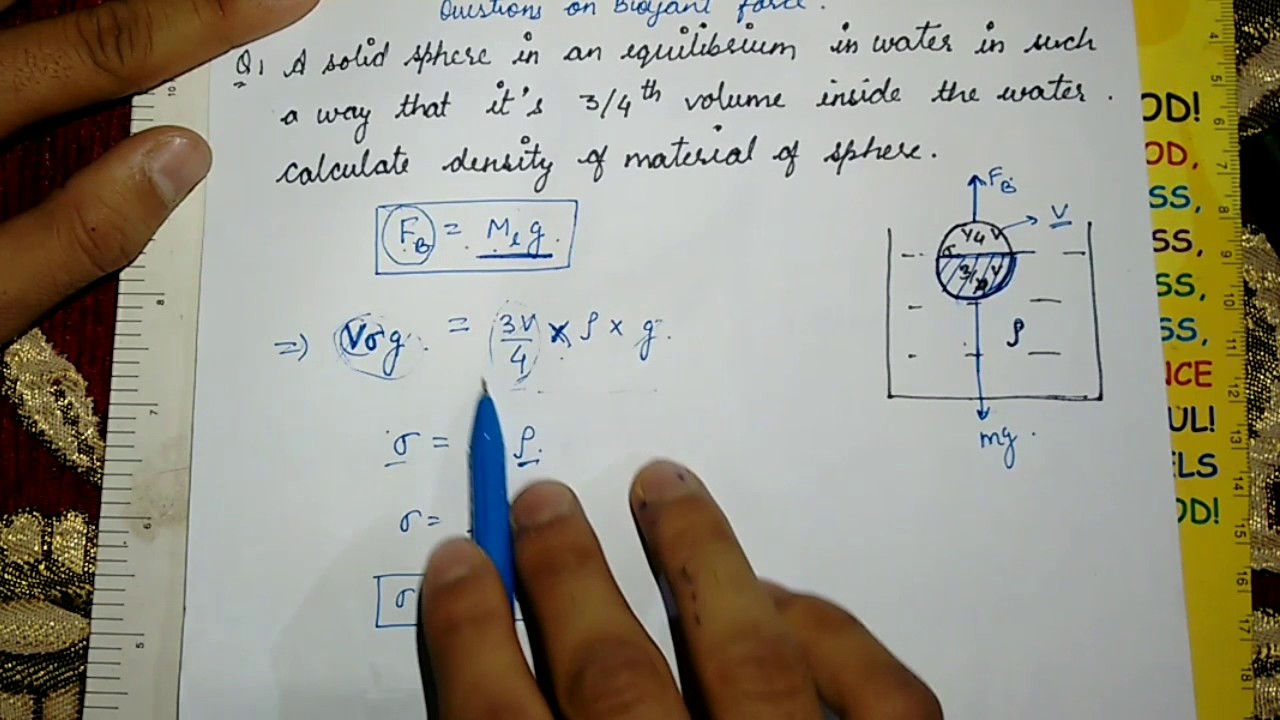 Questions on Buoyant force.
Q1 A solid sphere in an equilibrium in water in such
a way that it's 3/4th volume inside the water.
calculate density of material of sphere.
F_B = M_l g.
⇒) Vσg. = 3V/4 × ρ × g.
σ = ρ.
σ =
σ
F_B
V
1/4 V
σ
3/4 V
ρ
mg.
OD!
OD,
SS,
SS,
SS,
SS,
NCE
UL!
ELS
OD!
10
8
7
6
5
4
5
6
7
8
9
10
11
12
13
14
15
16
17
18